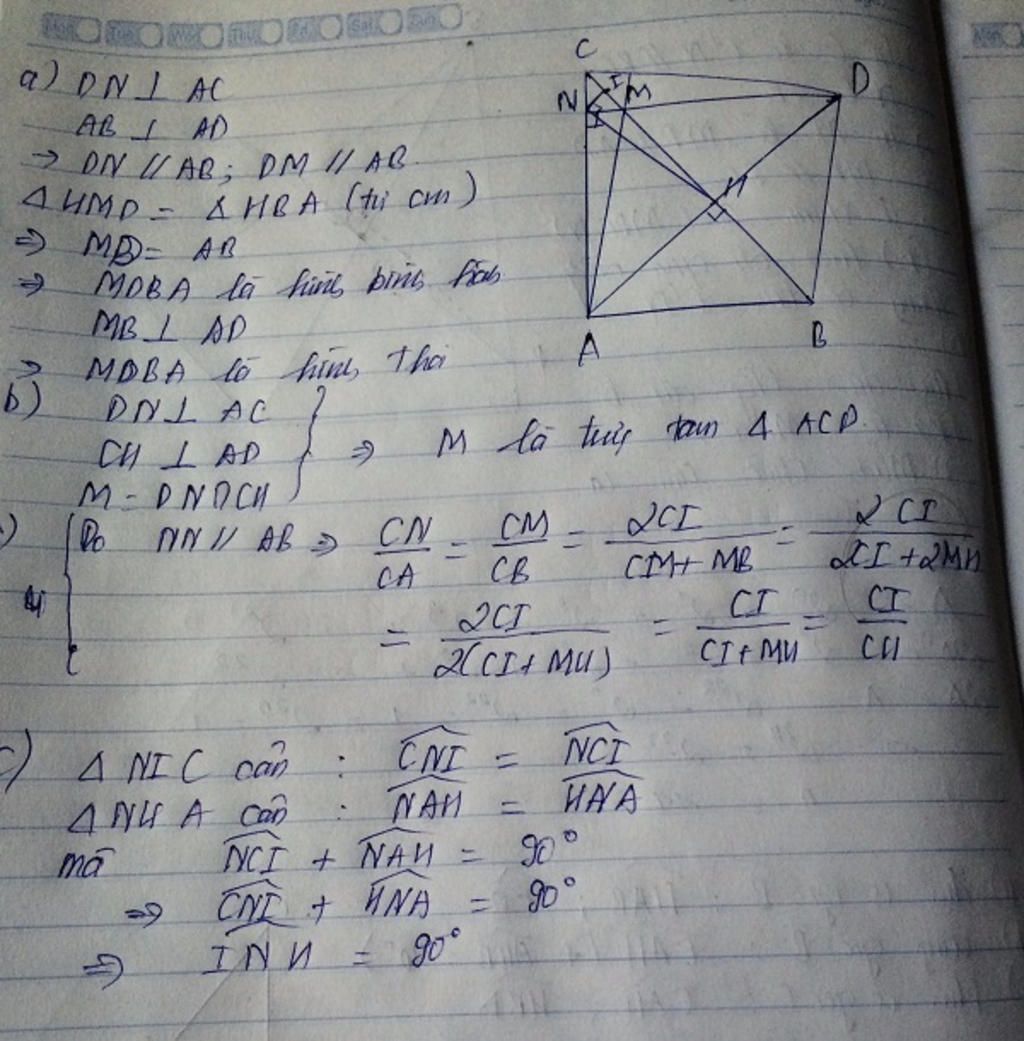 Mon Tue Wed Thu Fri Sat Sun
a) DN ⊥ AC
AB ⊥ AD
⇒ DN // AB ; DM // AB
Δ HMD = Δ HBA (tự cm)
⇒ MD = AB
⇒ MDBA là hình bình hành
MB ⊥ AD
⇒ MDBA là hình thoi
C
I
N
M
D
H
A
B
b) DN ⊥ AC
CH ⊥ AD
M = DN ∩ CH
⇒ M là trực tâm Δ ACD
Do NN // AB ⇒ CN/CA = CM/CB = 2CI/(CM + MB) = 2CI/(2CI + 2MH)
= 2CI/2(CI + MH) = CI/(CI + MH) = CI/CH
c) Δ NIC cân : CNI = NCI
Δ NHA cân : NAH = HNA
mà NCI + NAH = 90°
⇒ CNI + HNA = 90°
⇒ INH = 90°